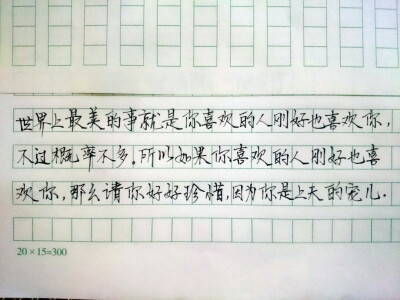 世界上最美的事就是你喜欢的人刚好也喜欢你,
不过概率不多.所以如果你喜欢的人刚好也喜
欢你,那么请你好好珍惜,因为你是上天的宠儿.
20×15=300